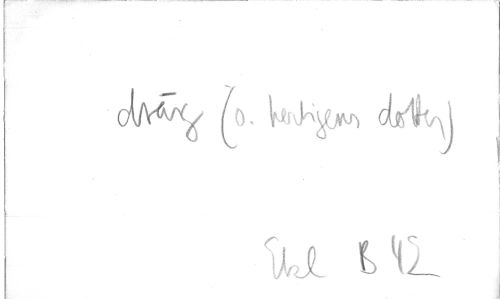 dräng (o. hertigens dotter)
Ekl B 42